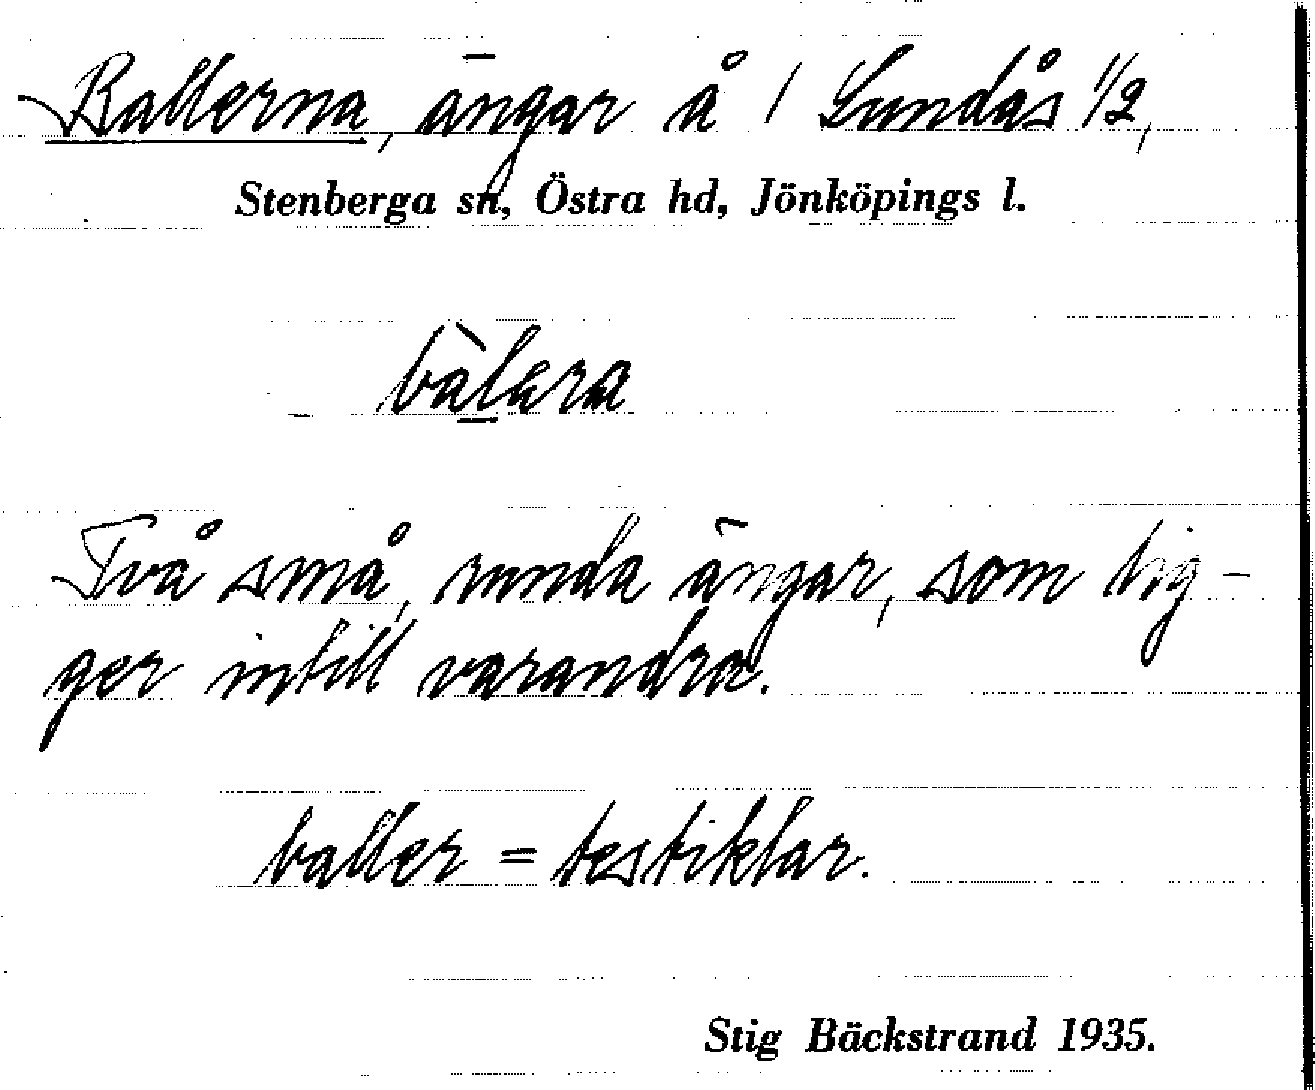 Ballerna, ängar å / Lundås 1/2,
Stenberga sn, Östra hd, Jönköpings l.
bàlara
Två små, runda ängar, som lig-
ger intill varandra.
baller = testiklar.
Stig Bäckstrand 1935.